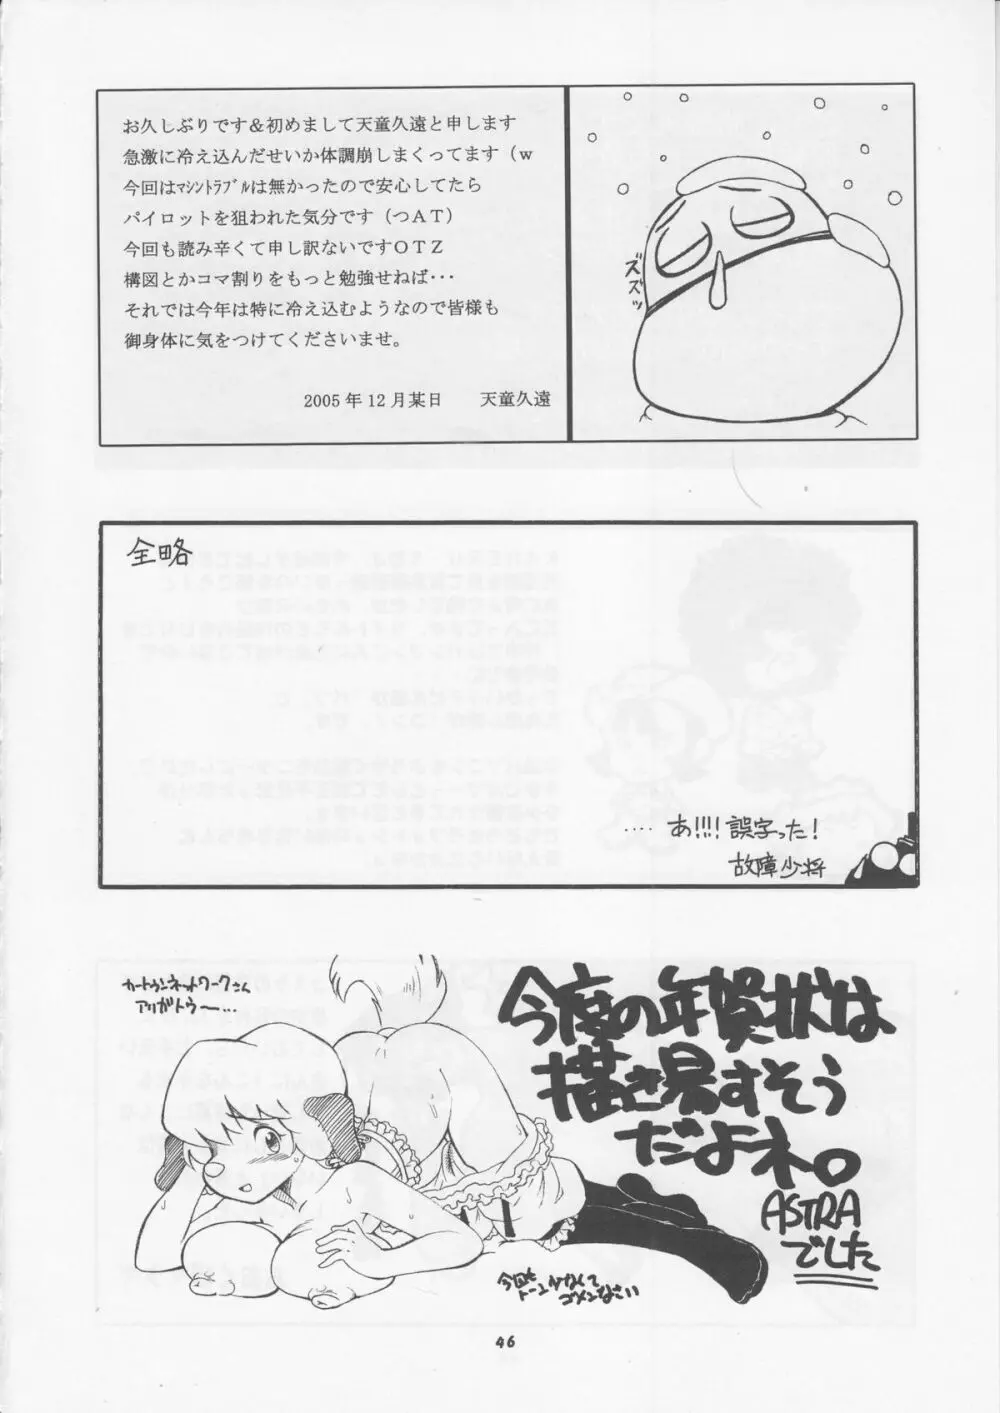 お久しぶりです＆初めまして天童久遠と申します
急激に冷え込んだせいか体調崩しまくってます（w
今回はﾏｼﾝﾄﾗﾌﾞﾙは無かったので安心してたら
パイロットを狙われた気分です（つAT）
今回も読み辛くて申し訳ないですOTZ
構図とかコマ割りをもっと勉強せねば･･･
それでは今年は特に冷え込むようなので皆様も
御身体に気をつけてくださいませ。
2005年12月某日　天童久遠
ズズズッ
全略
‥‥ あ!!!! 誤字った!
故障少将
カートゥンネットワークさん
アリガトウ〜…
今度の年賀状は
描き易すそう
だよネ。
ASTRA
でした
今回も
トーンがなくて
ゴメンなさい
46